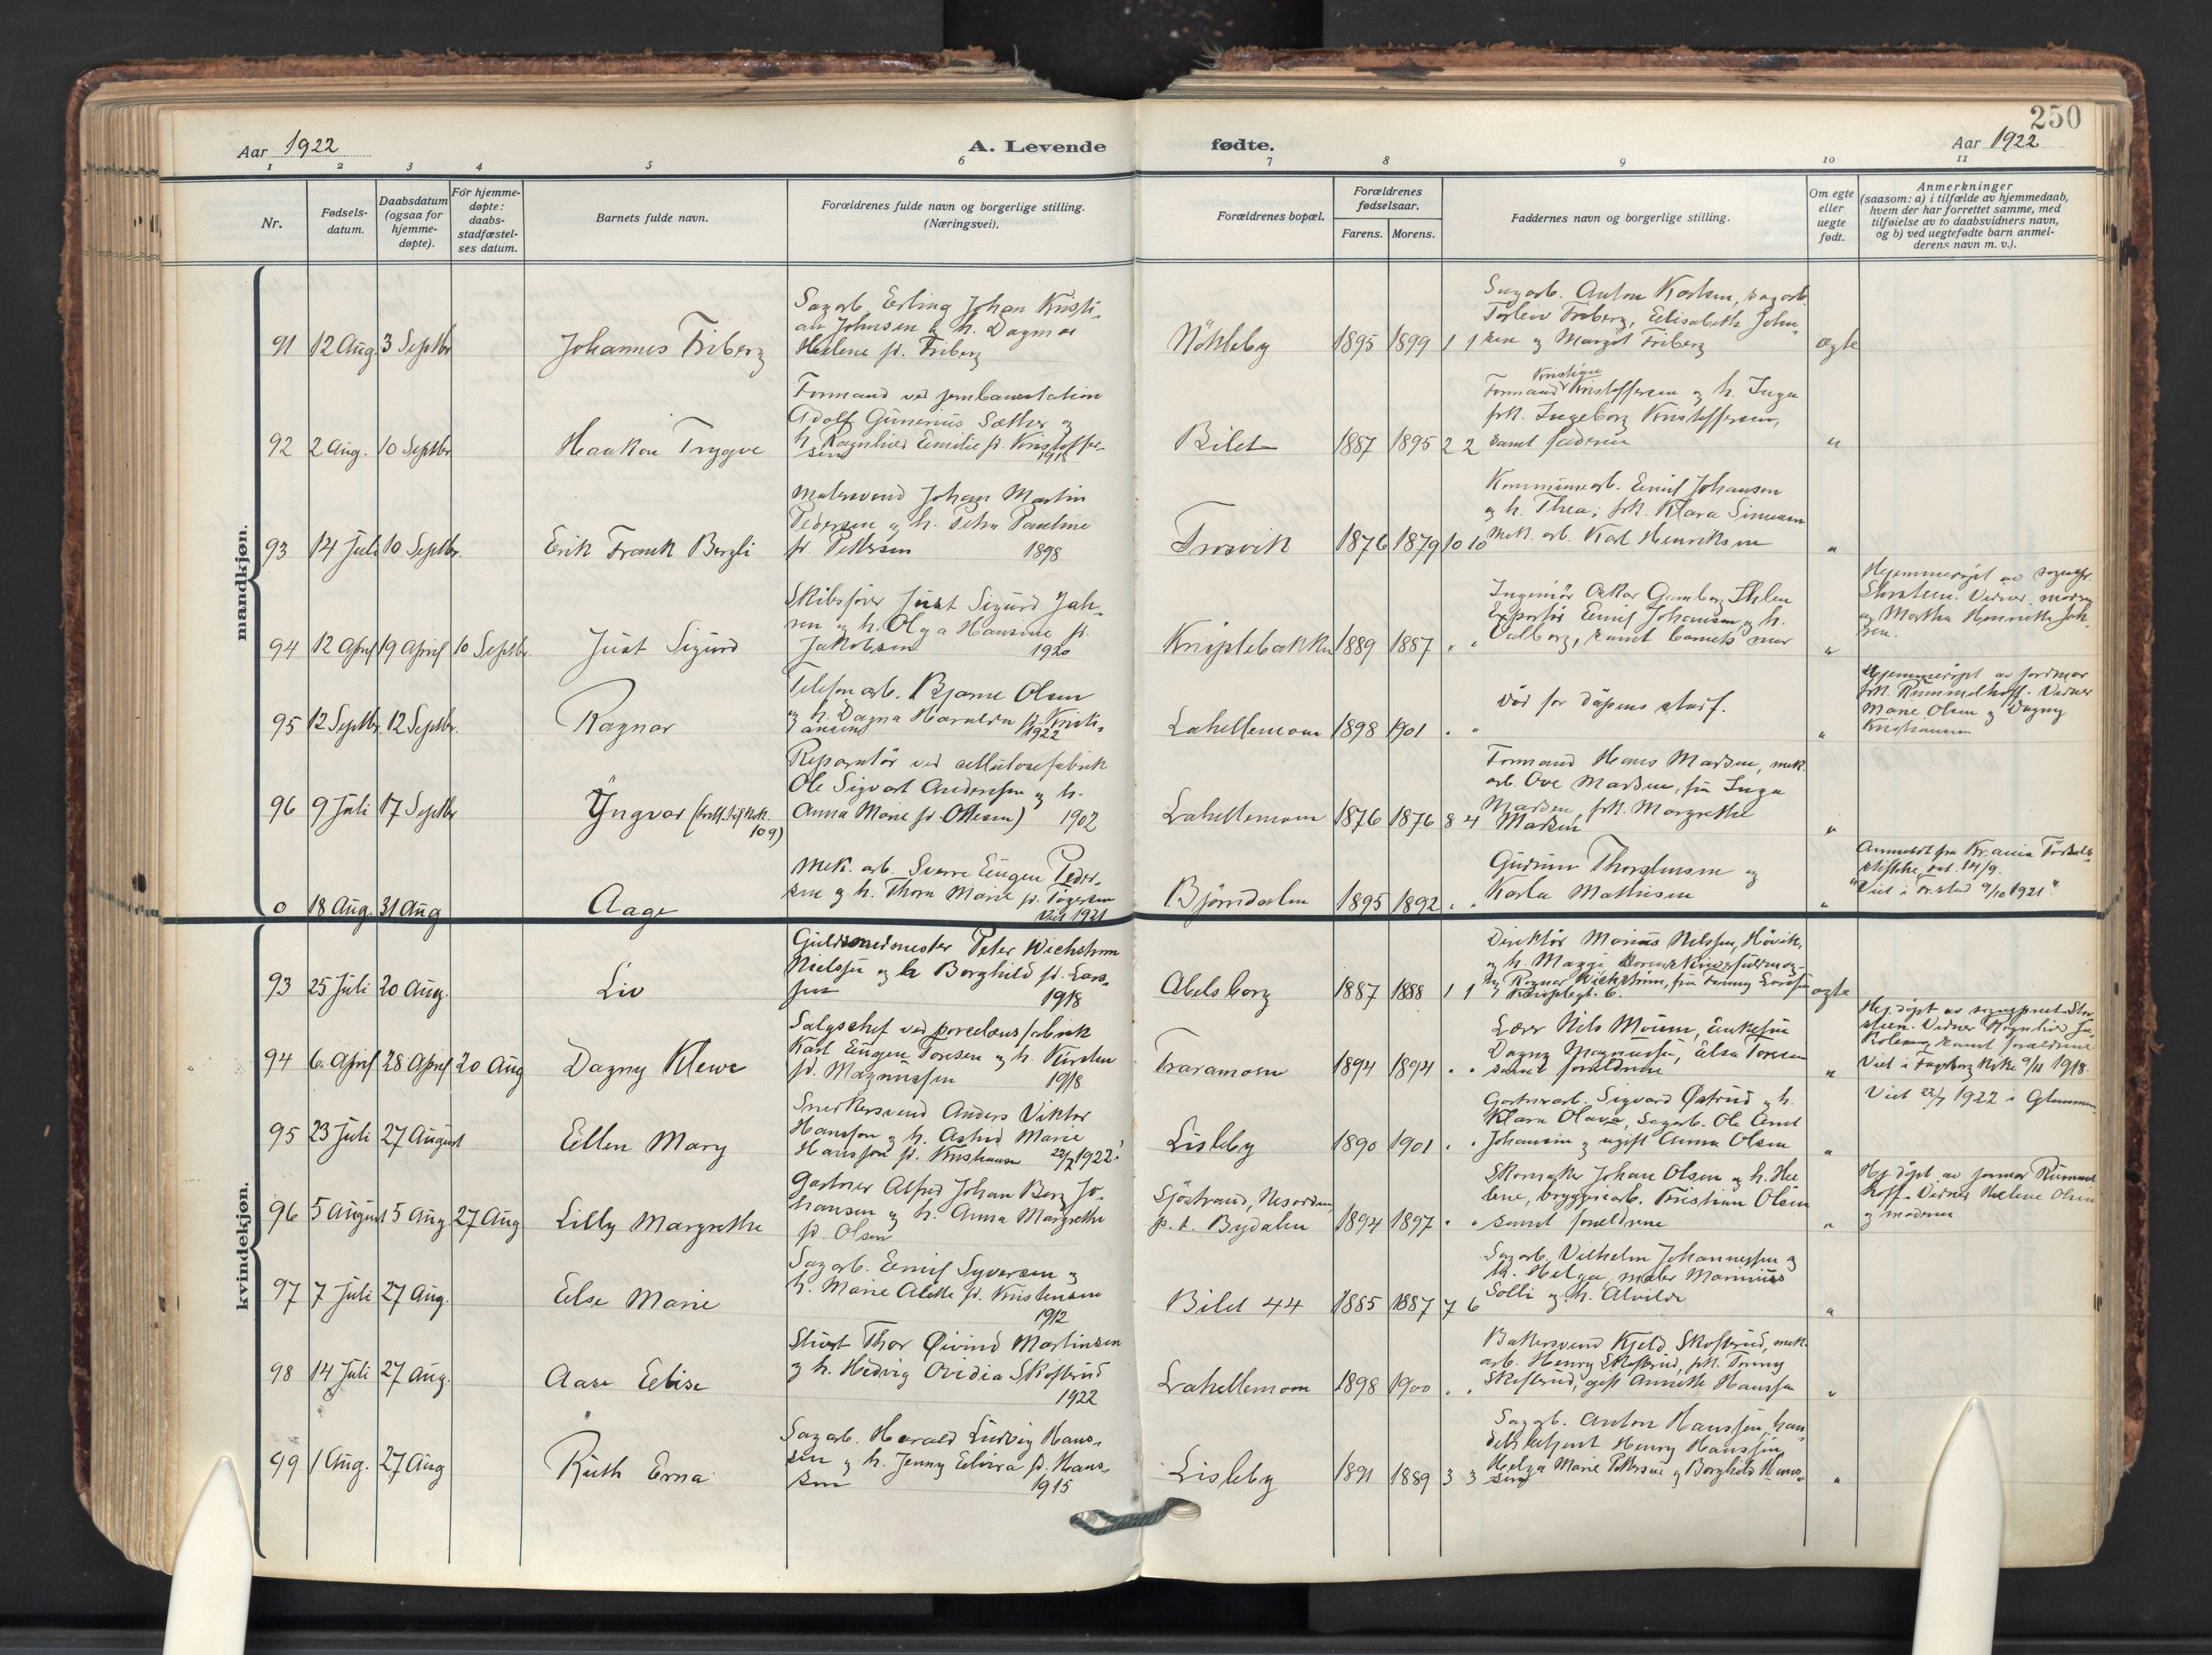 250
Aar 1922
A. Levende
fødte.
Aar 1922
1 2 3 4 5 6 7 8 9 10 11
Nr.
Fødsels-
datum.
Daabsdatum
(ogsaa for
hjemme-
døpte).
For hjemme-
døpte:
daabs-
stadfæstel-
ses datum.
Barnets fulde navn.
Forældrenes fulde navn og borgerlige stilling.
(Næringsvei).
Forældrenes bopæl.
Forældrenes
fødselsaar.
Farens. Morens.
Faddernes navn og borgerlige stilling.
Om egte
eller
uegte
født.
Anmerkninger
(saasom: a) i tilfælde av hjemmedaab,
hvem der har forrettet samme, med
tilføielse av to daabsvidners navn,
og b) ved uegtefødte barn anmel-
derens navn m. v.).
mandkjøn.
91 12 Aug. 3 Septbr Johannes Friberg
Sagarb. Erling Johan Kristi-
an Johnsen & h. Dagmar
Helene f. Friberg
Nökleby 1895 1899 1 1
Sagarb. Anton Karlsen, sagarb.
Torleiv Friberg, Elisabeth John-
sen og Margot Friberg
ægte
92 2 Aug. 10 Septbr Haakon Trygve
Formand ved jernbanestation
Adolf Gunerius Sæther og
h. Ragnhild Emilie f. Kristoffer-
sen 1918
Bilet 1887 1895 2 2
Kristian
Formand Kristoffersen og h. Inga
frk. Ingeborg Kristoffersen,
samt faderen
"
93 14 Juli 10 Septbr. Erik Frank Bergli
Malersvend Johan Martin
Pedersen og h. Petra Pauline
f. Pettersen 1898
Trosvik 1876 1879 10 10
Kommunearb. Emil Johansen
og h. Thea; frk. Klara Simensen
Mek. arb. Karl Henriksen
"
94 12 April 19 April 10 Septbr. Just Sigurd
Skibsfører Just Sigurd Jah-
sen og h. Olga Hansine f.
Jakobsen 1920
Kniplebakken 1889 1887 " "
Ingeniör Oskar Gamborg Ihlen
Exportör Emil Johansen og h.
Valborg, samt barnets mor
"
Hjemmedöpt av sognepr.
Storsteen. Vidner moren
og Martha Henriette Jah-
sen.
95 12 Septbr. 12 Septbr. Ragnar
Telefonarb. Bjarne Olsen
og h. Dagna Haralda f. Kristi-
ansen 1922
Lahellemoen 1898 1901 " "
död for dåpens stadf.
"
Hjemmedöpt av jordmor
frk. Rummelhoff. Vidner
Marie Olsen og Dagny
Kristiansen
96 9 Juli 17 Septbr Yngvar
109)
Reparatör ved cellulosefabrik
Ole Sigvart Andersen og h.
Anna Marie f. Ottesen) 1902
Lahellemoen 1876 1876 8 4
Formand Hans Madsen, mek.
arb. Ove Madsen, fru Inga
Madsen, frk. Margrethe
Madsen
"
0 18 Aug. 31 Aug Aage
Mek. arb. Sverre Eugen Peder-
sen og h. Thora Marie f. Tøgersen
Viet 1921
Björndalen 1895 1892 " "
Gudrun Thorstensen og
Karla Mathisen
"
Anmeldt fra Kr.ania Födsels-
stiftelse, dat. 14/9.
"Viet i Ørsted 9/10 1921".
kvindekjøn.
93 25 Juli 20 Aug. Liv
Guldsmedmester Peter Wichstrøm
Nielssen og h Borghild f. Lars-
sen 1918
Abelsborg 1887 1888 1 1
Direktör Marius Nilssen, Hövik,
og h. Maggi
Ragnar Wichstrøm, fru Fanny Larssen
Kniplegt. 6.
ægte
94 6. April 28 April 20 Aug Dagny Klewe
Salgschef ved porcelænsfabrik
Karl Eugen Toresen og h. Kirsten
f. Magnussen 1918
Traramoen 1894 1894 " "
Lærer Nils Moum, enkefru
Dagny Magnussen, Elsa Toresen
samt forældrene
"
Hj. döpt av sogneprest Stor-
steen. Vidner Ragnhild
samt forældrene
Viet i Fagerborg Kirke 9/11 1918.
95 23 Juli 27 August Ellen Mary
Snedkersvend Anders Viktor
Hansson og h. Astrid Marie
Hansson f. Kristiansen 22/7 1922.
Lisleby 1890 1901 " "
Gartnerarb. Sigvard Østrud og h.
Klara Olava, Sagarb. Ole Anet
Johansen og ugift Anna Olsen
"
Viet 22/7 1922 i Glemmen.
96 5 August 5 Aug 27 Aug Lilly Margrethe
Gartner Alfred Johan Berg Jo-
hansen og h. Anna Margrethe
f. Olsen
Sjöstrand, Nesodden
p.t. Brydalen 1894 1897 " "
Skomaker Johan Olsen og h. He-
lene, bryggeriarb. Kristian Olsen
samt forældrene
"
Hj. döpt av jormor Rummel-
hoff. Vidner Helene Olsen
og moderen
97 7 Juli 27 Aug. Else Marie
Sagarb. Emil Syversen og
h. Marie Alette f. Kristensen
1912
Bilet 44 1885 1887 7 6
Sagarb. Vilhelm Johannessen og
h. Helga, maler Marinius
Solli og h. Alvilde
"
98 14 Juli 27 Aug. Aase Elise
Stuert Thor Øivind Martinsen
og h. Hedvig Ovidia Skofterud
1922
Lahellemoen 1898 1900 " "
Bakersvend Kjeld Skofterud, mek.
arb. Henry Skofterud, frk. Tonny
Skofterud, gift Annette Hanssen
"
99 1 Aug. 27 Aug Ruth Erna
Sagarb. Harald Ludvig Hans-
sen og h. Jenny Elvira f. Hans-
sen 1915
Lisleby 1891 1889 3 3
Sagarb. Anton Hanssen, han-
delsbetjent Henry Hanssen,
Helga Marie Pettersen og Borghild Hans-
sen
"